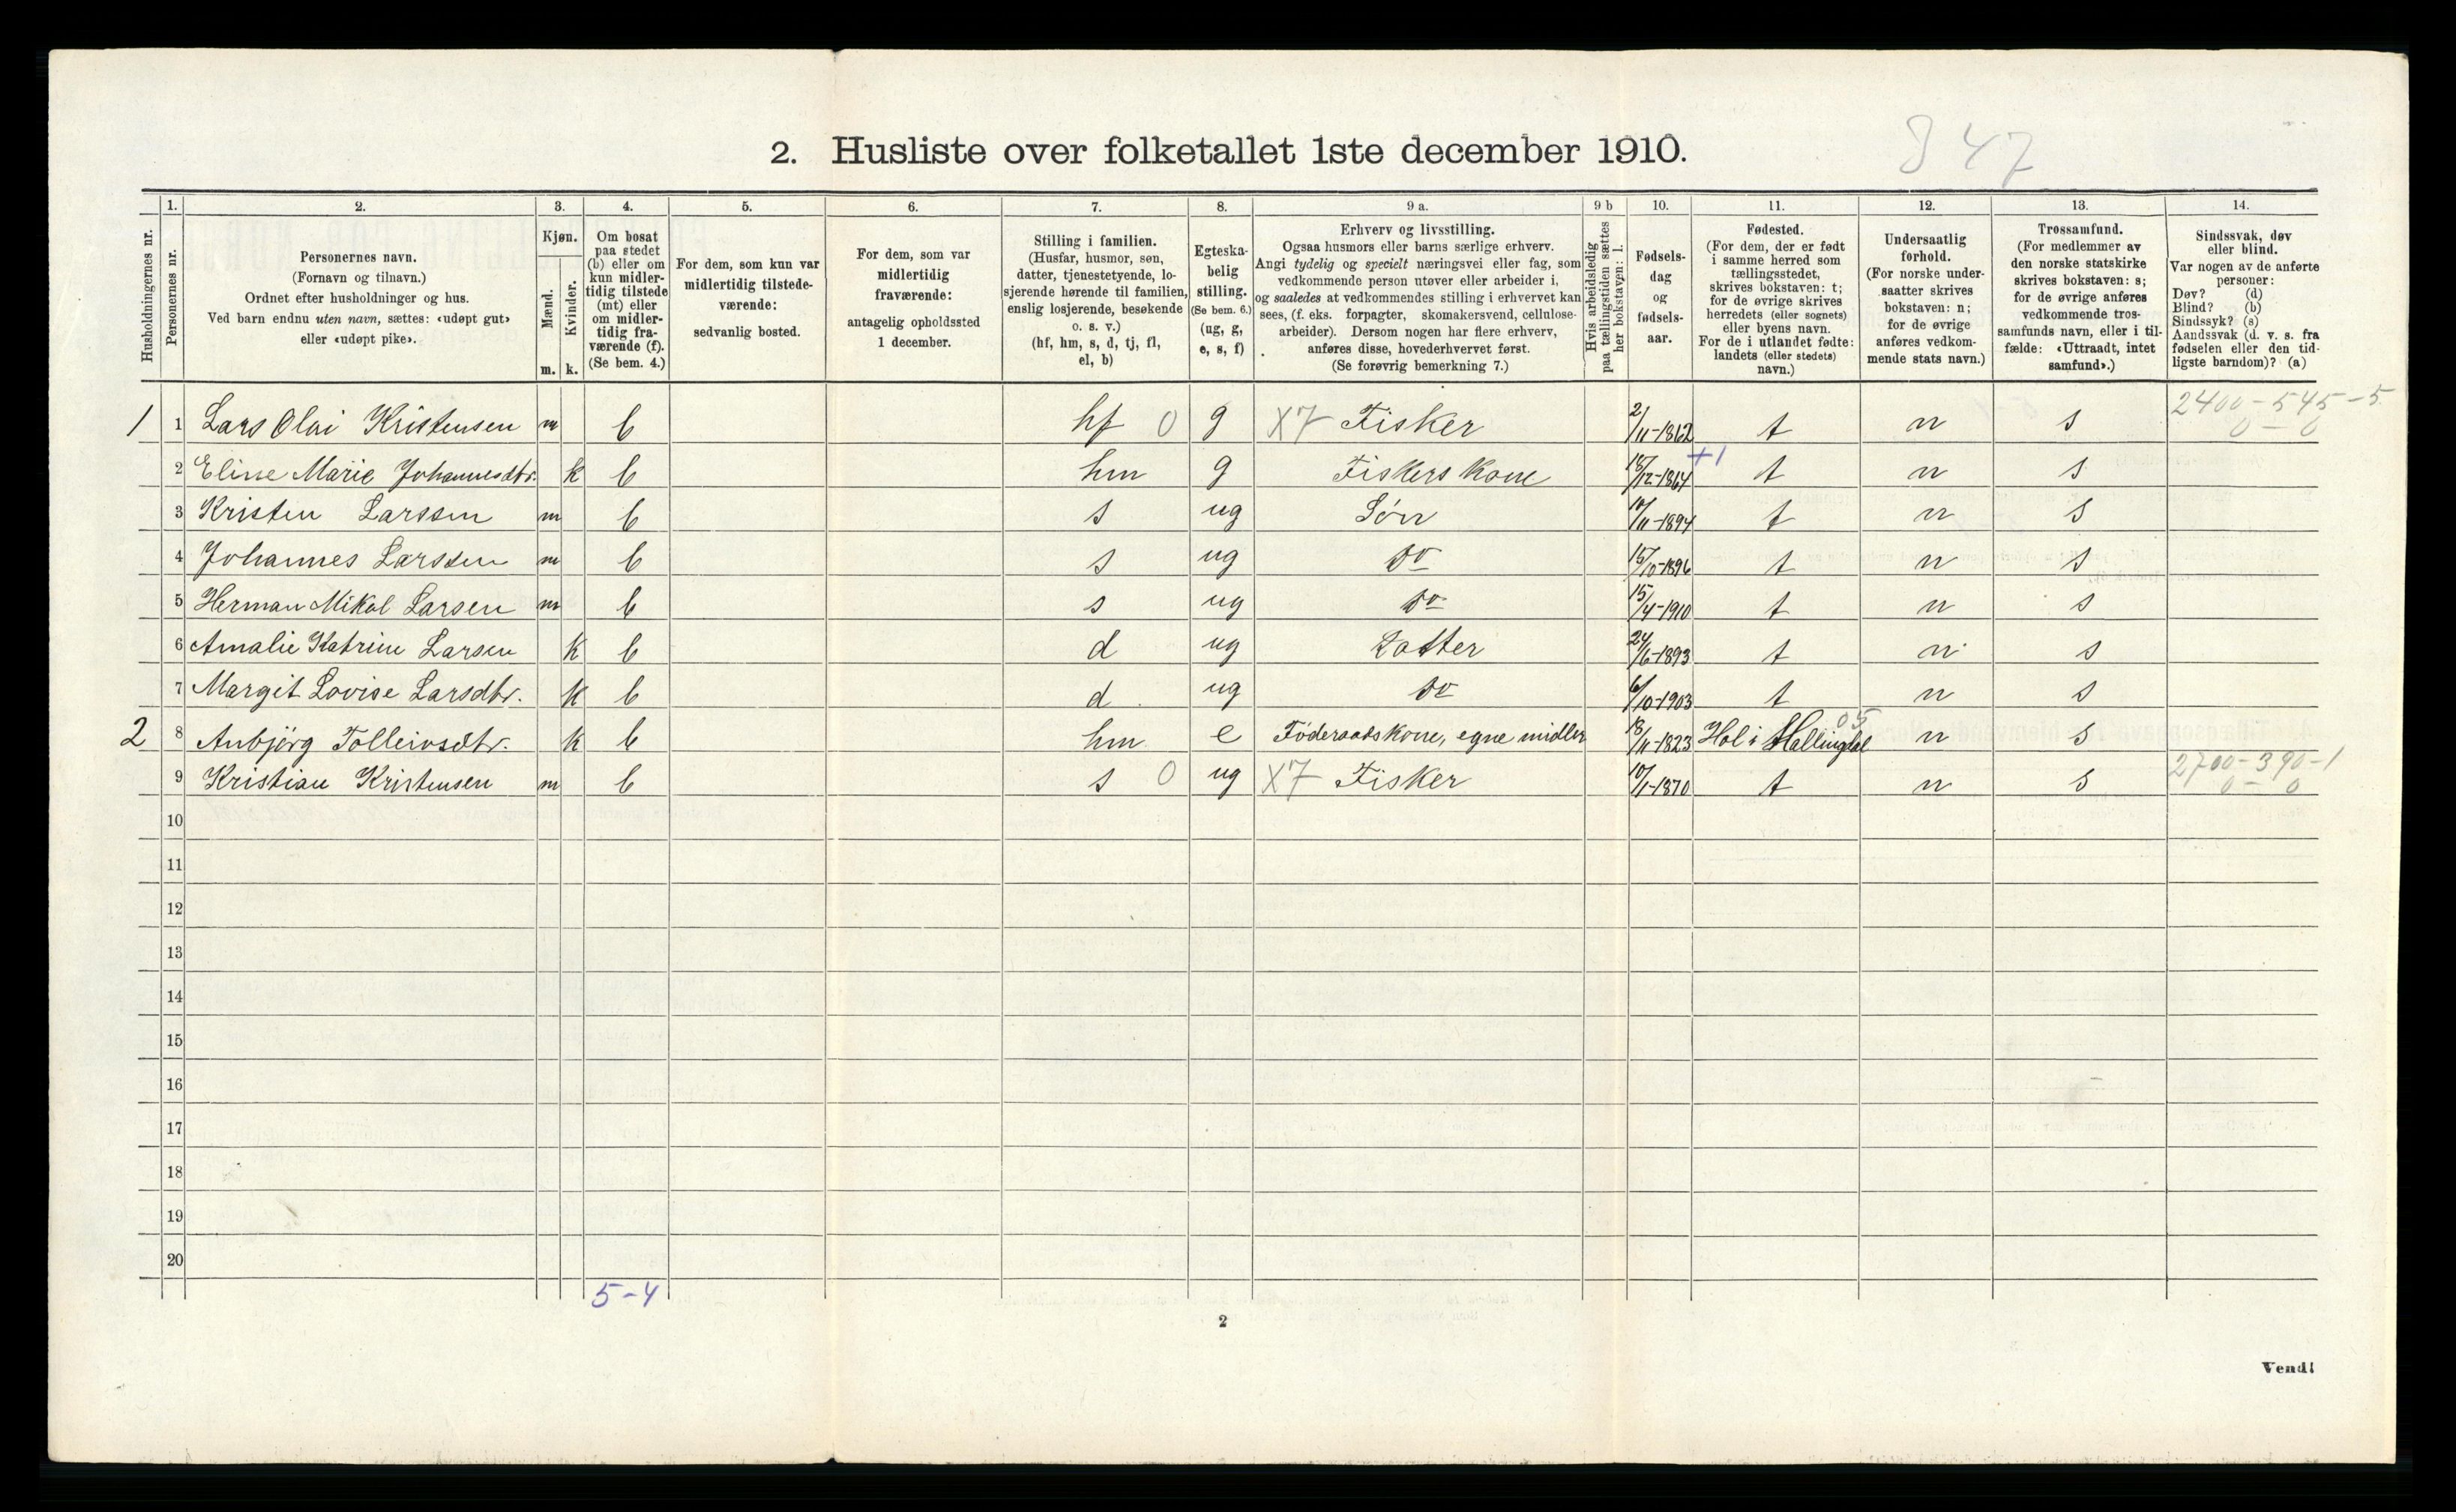 2. Husliste over folketallet 1ste december 1910.
847
Husholdningernes nr.
1.
Personernes nr.
2.
Personernes navn.
(Fornavn og tilnavn.)
Ordnet efter husholdninger og hus.
Ved barn endnu uten navn, sættes: «udøpt gut»
eller «udøpt pike».
3.
Kjøn.
Mænd.
Kvinder.
m. k.
4.
Om bosat
paa stedet
(b) eller om
kun midler-
tidig tilstede
(mt) eller
om midler-
tidig fra-
værende (f).
(Se bem. 4.)
5.
For dem, som kun var
midlertidig tilstede-
værende:
sedvanlig bosted.
6.
For dem, som var
midlertidig
fraværende:
antagelig opholdssted
1 december.
7.
Stilling i familien.
(Husfar, husmor, søn,
datter, tjenestetyende, lo-
sjerende hørende til familien,
enslig losjerende, besøkende
o. s. v.)
(hf, hm, s, d, tj, fl,
el, b)
8.
Egteska-
belig
stilling.
(Se bem. 6.)
(ug, g,
e, s, f)
9 a.
Erhverv og livsstilling.
Ogsaa husmors eller barns særlige erhverv.
Angi tydelig og specielt næringsvei eller fag, som
vedkommende person utøver eller arbeider i,
og saaledes at vedkommendes stilling i erhvervet kan
sees, (f. eks. forpagter, skomakersvend, cellulose-
arbeider). Dersom nogen har flere erhverv,
anføres disse, hovederhvervet først.
(Se forøvrig bemerkning 7.)
9 b
Hvis arbeidsledig
paa tællingstiden sættes
her bokstaven: l.
10.
Fødsels-
dag
og
fødsels-
aar.
11.
Fødested.
(For dem, der er født
i samme herred som
tællingsstedet,
skrives bokstaven: t;
for de øvrige skrives
herredets (eller sognets)
eller byens navn.
For de i utlandet fødte:
landets (eller stedets)
navn.)
12.
Undersaatlig
forhold.
(For norske under-
saatter skrives
bokstaven: n;
for de øvrige
anføres vedkom-
mende stats navn.)
13.
Trossamfund.
(For medlemmer av
den norske statskirke
skrives bokstaven: s;
for de øvrige anføres
vedkommende tros-
samfunds navn, eller i til-
fælde: «Uttraadt, intet
samfund».)
14.
Sindssvak, døv
eller blind.
Var nogen av de anførte
personer:
Døv? (d)
Blind? (b)
Sindssyk? (s)
Aandssvak (d. v. s. fra
fødselen eller den tid-
ligste barndom)? (a)
1 1 Lars Olai Kristensen m b hf 0 g X7 Fisker 2/11-1862 t n s 2400-545-5
0 - 0
2 Eline Marie Johannesdtr. k b hm g Fiskers kone 18/12-1864 +1 t n s
3 Kristen Larssen m b s ug Søn 10/11-1894 t n s
4 Johannes Larssen m b s ug do 15/10-1896 t n s
5 Herman Mikal Larsen m b s ug do 15/4-1910 t n s
6 Amalie Katrine Larsen k b d ug Datter 24/6-1893 t n s
7 Margit Lovise Larsdtr. k b d ug do 6/10-1903 t n s
2 8 Anbjörg Tolleivsdtr. k b hm e Föderaadskone, egne midler 18/11-1823 Hol i Hallingdal 05 n s
9 Kristian Kristensen m b s 0 ug X7 Fisker 10/1-1870 t n s 2700-390-1
0 - 0
10
11
12
13
14
15
16
17
18
19
20
5-4
2
Vend!